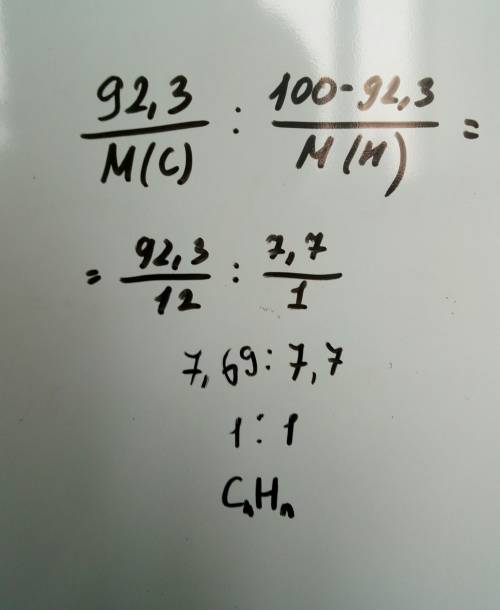 92,3 / M(C) : 100-92,3 / M(H) =
= 92,3 / 12 : 7,7 / 1
7,69 : 7,7
1 : 1
CnHn